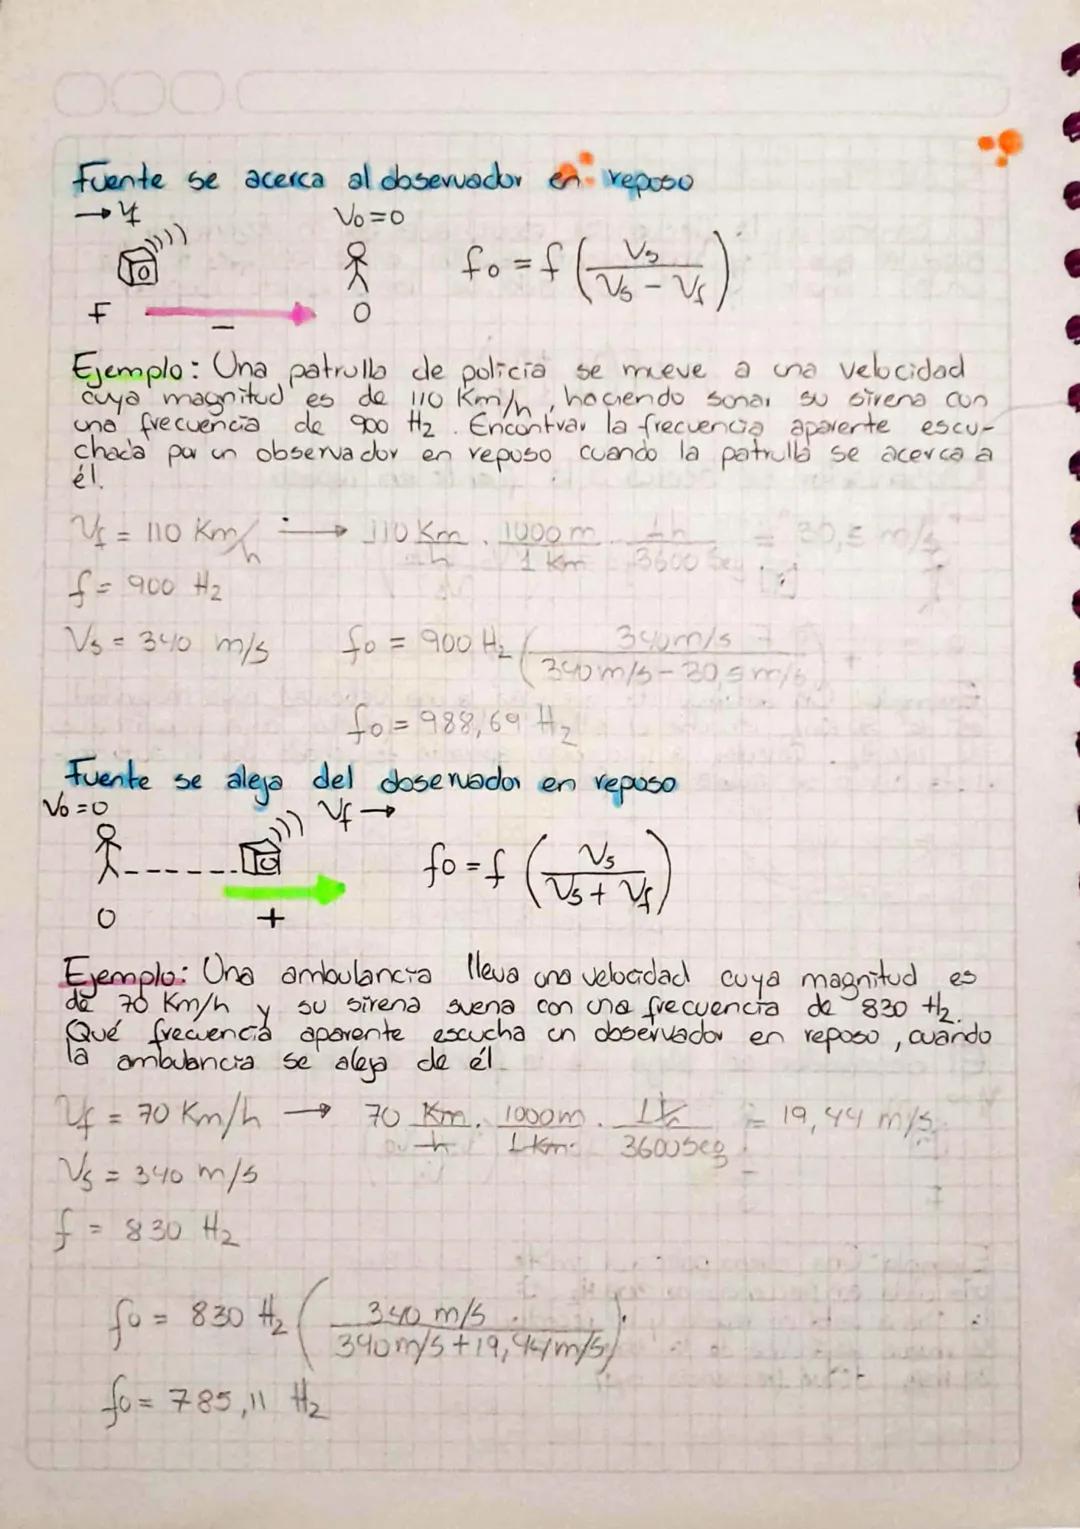 Fuente se acerca al observador en reposo
→ Vf
Vo = 0
fo = f ( Vs / Vs - Vf )
F
−
O
Ejemplo: Una patrulla de policia se mueve a una velocidad
cuya magnitud es de 110 Km/h, haciendo sonar su sirena con
una frecuencia de 900 Hz. Encontrar la frecuencia aparente escu-
chada por un observador en reposo cuando la patrulla se acerca a
él.
Vf = 110 Km/h → 110 Km/h . 1000 m/1 Km . 1h/3600 seg = 30,5 m/s
f = 900 Hz
Vs = 340 m/s
fo = 900 Hz ( 340 m/s / 340 m/s - 30,5 m/s )
fo = 988,69 Hz
Fuente se aleja del observador en reposo
Vo = 0
Vf →
fo = f ( Vs / Vs + Vf )
O
+
Ejemplo: Una ambulancia lleva una velocidad cuya magnitud es
de 70 Km/h y su sirena suena con una frecuencia de 830 Hz.
Qué frecuencia aparente escucha un observador en reposo, cuando
la ambulancia se aleja de él.
Vf = 70 Km/h → 70 Km/h . 1000m/1 Km . 1h/3600seg = 19,44 m/s
Vs = 340 m/s
f = 830 Hz
fo = 830 Hz ( 340 m/s / 340 m/s + 19,44 m/s )
fo = 785,11 Hz